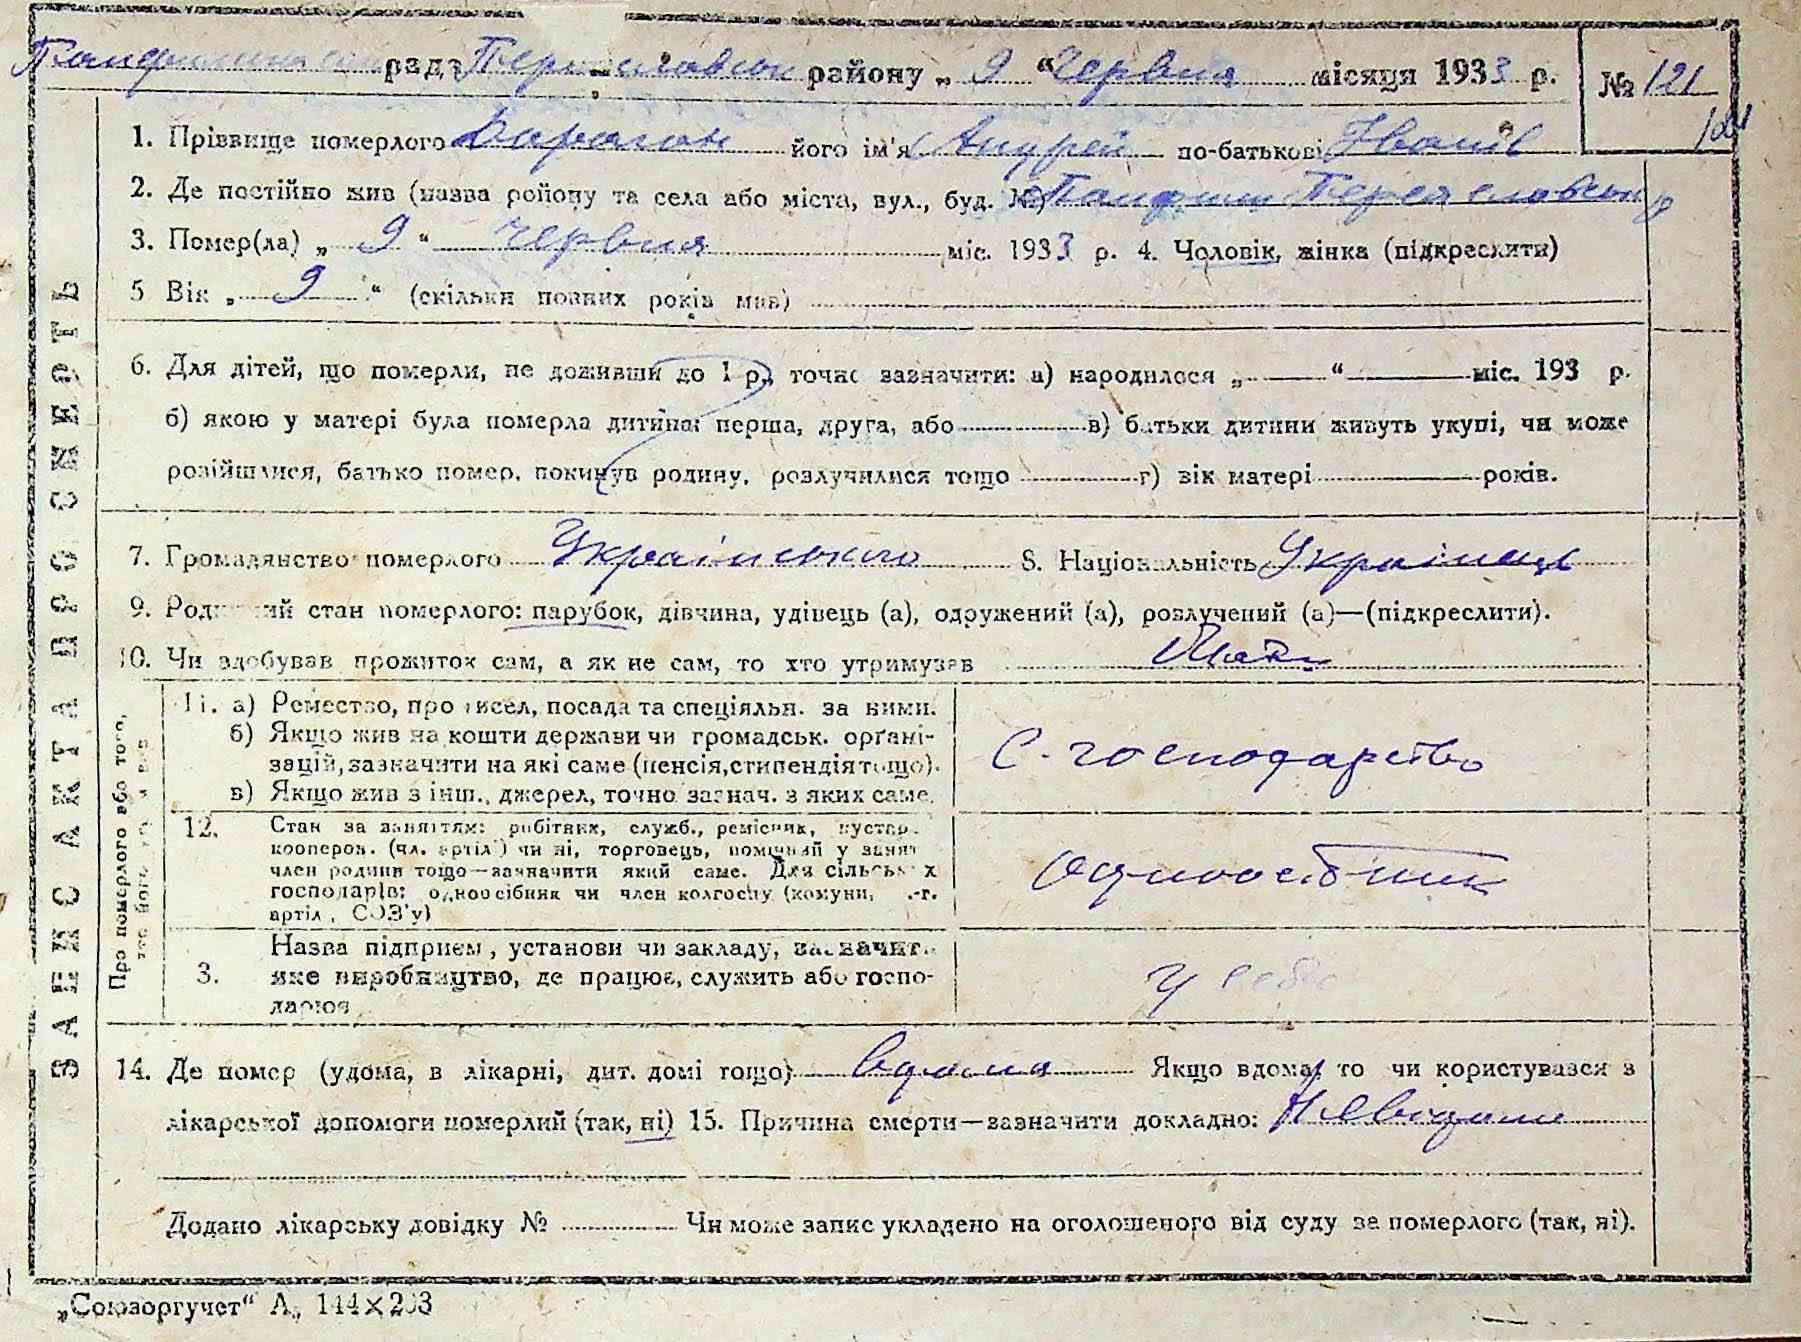 рада Переяславськ району „ 9 “ Червня місяця 1933 р. № 121
1. Прізвище померлого його ім'я Андрей по-батькові Іванів
2. Де постійно жив (назва району та села або міста, вул., буд. №) Панфили Переяславську
3. Помер(ла) „ 9 “ червня міс. 1933 р. 4. Чоловік, жінка (підкреслити)
5 Вік „ 9 “ (скільки повних років мав)
6. Для дітей, що померли, не доживши до 1 р., точно зазначити: а) народилося „ “ міс. 193 р.
б) якою у матері була померла дитина: перша, друга, або в) батьки дитини живуть укупі, чи може
розійшлися, батько помер, покинув родину, розлучилися тощо г) вік матері років.
7. Громадянство померлого Українського 8. Національність Українець
9. Родинний стан померлого: парубок, дівчина, удівець (а), одружений (а), розлучений (а)—(підкреслити).
10. Чи здобував прожиток сам, а як не сам, то хто утримував Мати
ЗАПИС АКТА ПРО СМЕРТЬ
Про померлого або того,
хто його
11. а) Ремество, промисел, посада та спеціяльн. за ними.
б) Якщо жив на кошти держави чи громадськ. органі-
зацій, зазначити на які саме (пенсія, стипендія тощо).
в) Якщо жив з інш., джерел, точно зазнач. з яких саме.
С. господарство
12. Стан за заняттям: робітник, служб., ремісник, кустар.
кооперов. (чл. артілі) чи ні, торговець, помічний у занят.
член родини тощо—зазначити який саме. Для сільських
господарів: одноосібник чи член колгоспу (комуни, с.-г.
артіл., СОЗ'у)
одноосібник
3. Назва підприєм., установи чи закладу, зазначити
яке виробництво, де працює, служить або госпо-
дарює
у себе
14. Де помер (удома, в лікарні, дит. домі тощо) вдома Якщо вдома, то чи користувався з
лікарської допомоги померлий (так, ні) 15. Причина смерти—зазначити докладно: Невідома
Додано лікарську довідку № Чи може запис укладено на оголошеного від суду за померлого (так, ні).
„Союзоргучет“ А, 144×203